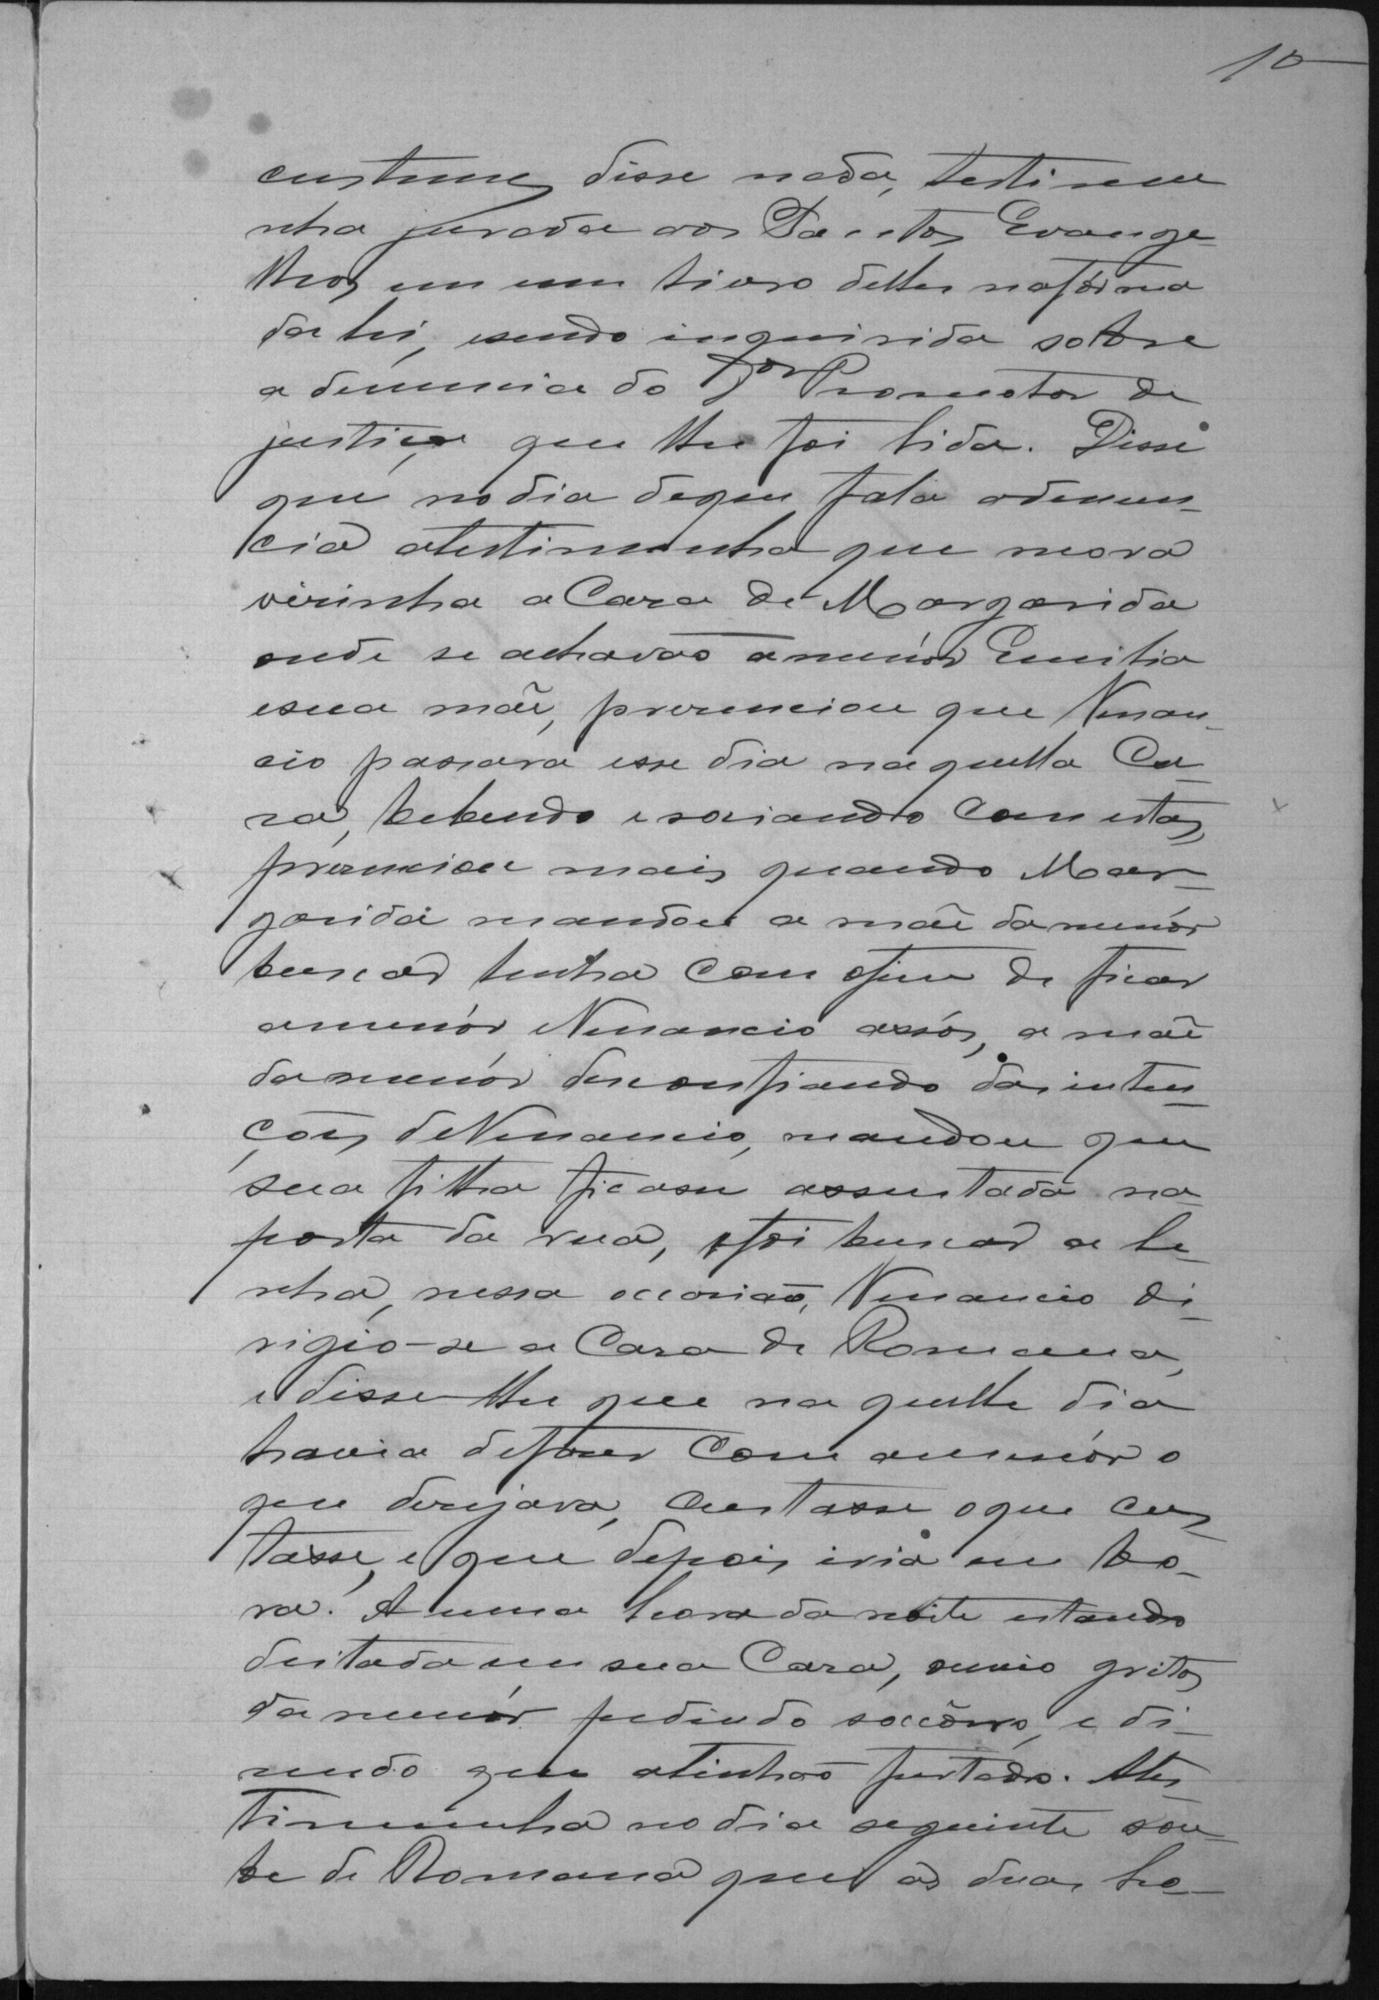 10
custumes disse nada, testimu
nha jurada aos Santos Evange-
lhos em um livro delles na fórma
da lei, e sendo inquirida sobre
a denuncia do Dor Promotor de
justiça, que lhe foi lida. Disse
que no dia de que fala a denun-
cia a testimunha que mora
visinha a Casa de Margarida
onde se achavão a menór Emilia
e sua mãe, presenciou que Venan-
cio passara esse dia naquella Ca-
sa, bebendo e saciando com estas,
presenciou mais quando Mar-
garida mandou a mãe da menór
buscar lenha com o fim de ficar
a menór e Venancio assós, a mãe
da menór desconfiando das inten-
ções de Venancio, mandou que
sua filha ficasse assentada na
porta da rua, e foi buscar a le-
nha, nessa occasião, Venancio di-
rigio-se a Casa de Romana,
e disse-lhe que naquelle dia
havia de fazer com a menór o
que desejava, custasse o que cus-
tasse, e que depois iria em bo-
ra. A uma hora da noite estando
deitada em sua Casa, ouvio gritos
da menór pedindo soccôrro, e di-
sendo que a tinhão furtado. A tes-
timunha no dia seguinte sou-
be de Romana que as duas ho-